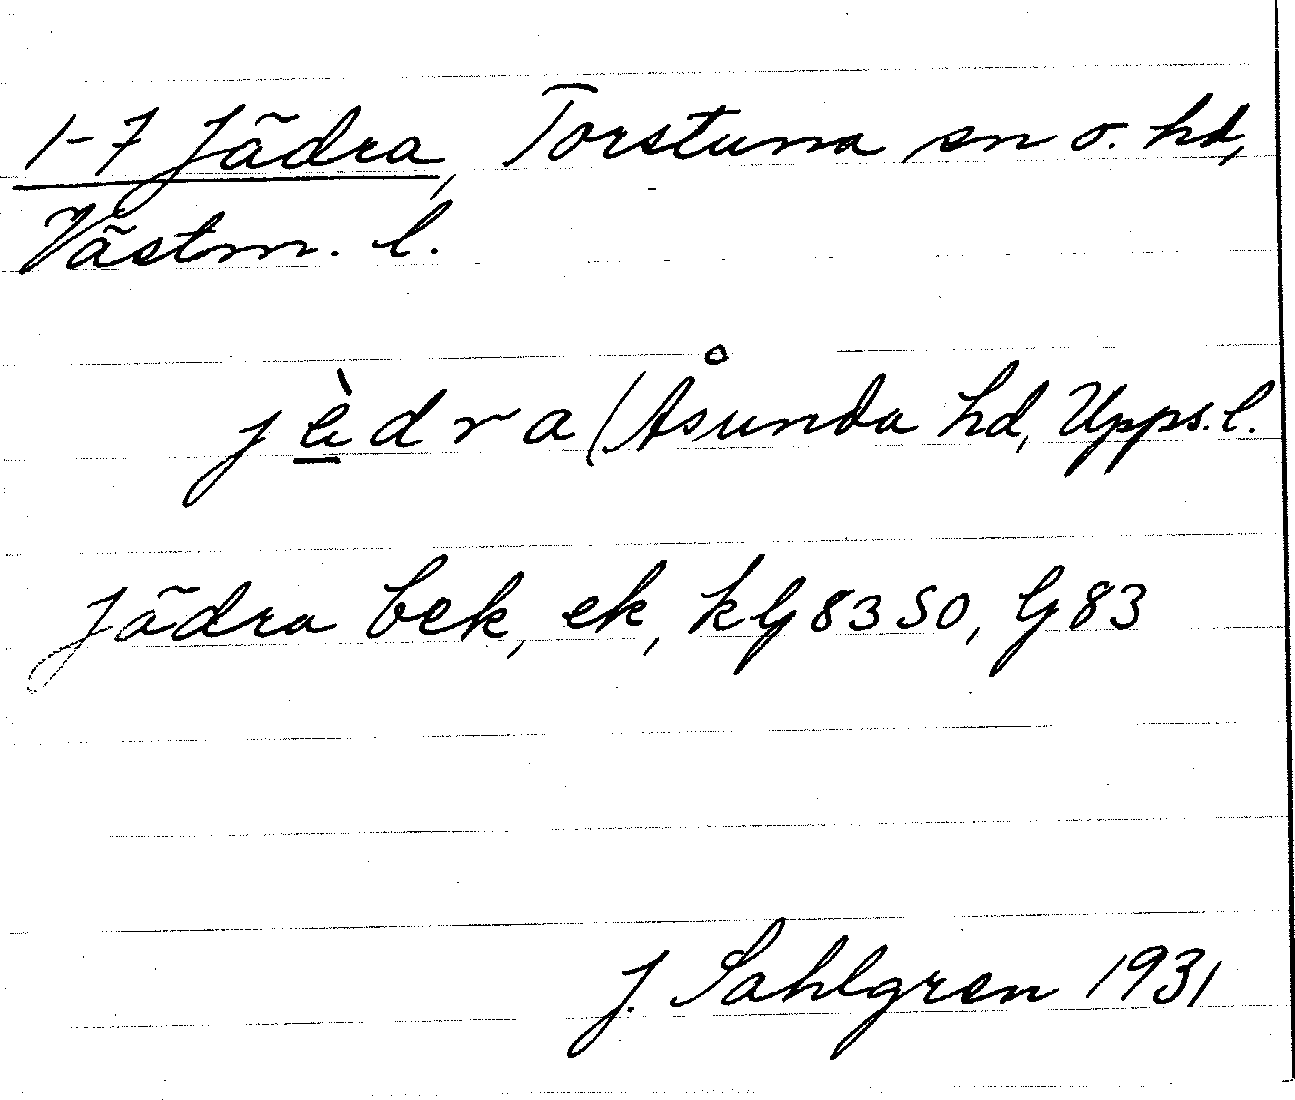 1-7 Jädra, Torstuna sn o. hd,
Västm. l.
jèdra (Åsunda hd, Upps. l.
Jädra bek, ek, kG 83 50, G 83
J. Sahlgren 1931